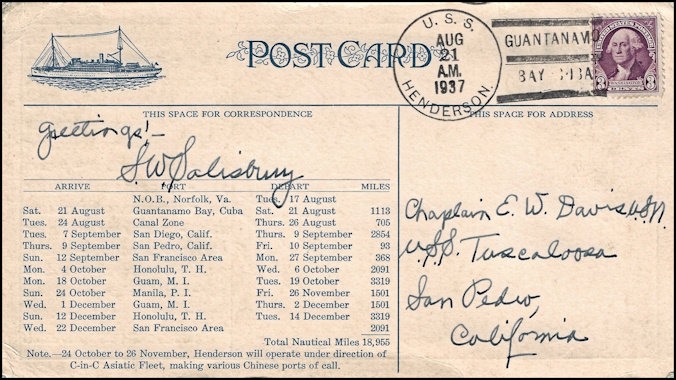 POST CARD
U. S. S.
AUG
21
A.M.
1937
HENDERSON.
GUANTANAMO
BAY CUBA
UNITED STATES POSTAGE
3 CENTS 3
THIS SPACE FOR CORRESPONDENCE
THIS SPACE FOR ADDRESS
Greetings! —
S.W. Salisbury
ARRIVE PORT DEPART MILES
N.O.B., Norfolk, Va. Tues. 17 August
Sat. 21 August Guantanamo Bay, Cuba Sat. 21 August 1113
Tues. 24 August Canal Zone Thurs. 26 August 705
Tues. 7 September San Diego, Calif. Thurs. 9 September 2854
Thurs. 9 September San Pedro, Calif. Fri. 10 September 93
Sun. 12 September San Francisco Area Mon. 27 September 368
Mon. 4 October Honolulu, T. H. Wed. 6 October 2091
Mon. 18 October Guam, M. I. Tues. 19 October 3319
Sun. 24 October Manila, P. I. Fri. 26 November 1501
Wed. 1 December Guam, M. I. Thurs. 2 December 1501
Sun. 12 December Honolulu, T. H. Tues. 14 December 3319
Wed. 22 December San Francisco Area 2091
Total Nautical Miles 18,955
Note.—24 October to 26 November, Henderson will operate under direction of
C-in-C Asiatic Fleet, making various Chinese ports of call.
Chaplain E. W. Davis U.S.N.
U.S.S. Tuscaloosa
San Pedro,
California